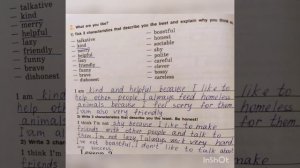 - talkative
- kind
- merry
- helpful
- lazy
- friendly
- funny
- brave
- dishonest
What are you like?
1) Tick 3 characteristics that describe you the best and explain why you think so
- talkative
- kind
- merry
- helpful
- lazy
- friendly
- funny
- brave
- dishonest
- boastful
- honest
- sociable
- shy
- polite
- careful
- clever
- bossy
- careless
I am kind and helpful because I like to
help other people. I always feed homeless
animals because I feel sorry for them.
I am also very friendly
2) Write 3 characteristics that don't describe you the least. Be honest!
I think I'm not shy because I like to make
friends with other people and talk to
them. I'm not lazy. I always work very hard
I'm not boastful, I don't like to talk about
my success.
I am kin
help oth
animals
I am als
2) Write 3 char
I think I'm
InShot